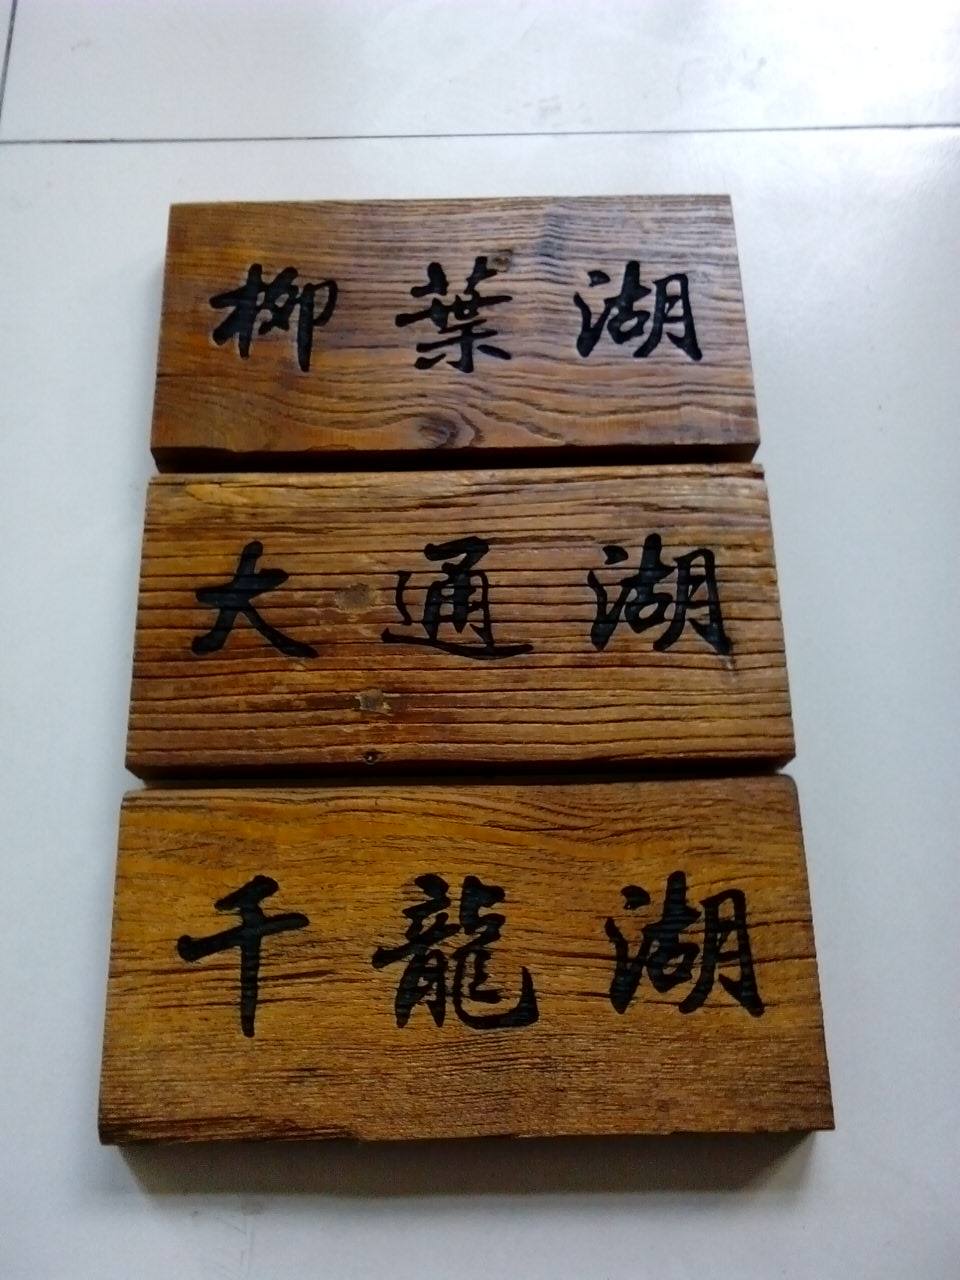 柳葉湖
大通湖
千龍湖